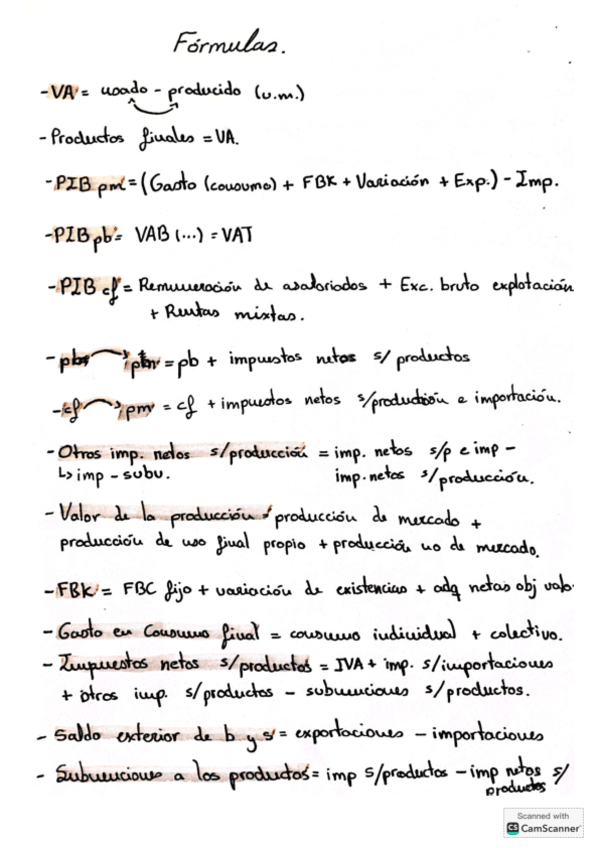 Fórmulas.
- VA = usado - producido (u.m.)
- Productos finales = VA.
- PIB pm = (Gasto (consumo) + FBK + Variación + Exp.) - Imp.
- PIB pb = VAB (...) = VAT
- PIB cf = Remuneración de asalariados + Exc. bruto explotación
+ Rentas mixtas.
- pb → pm = pb + impuestos netos s/ productos
- cf → pm = cf + impuestos netos s/producción e importación.
- Otros imp. netos s/producción = imp. netos s/p e imp -
↳ imp - subu. imp. netos s/producción.
- Valor de la producción = producción de mercado +
producción de uso final propio + producción no de mercado.
- FBK = FBC fijo + variación de existencias + adq netas obj valo.
- Gasto en Consumo final = consumo individual + colectivo.
- Impuestos netos s/productos = IVA + imp. s/importaciones
+ otros imp. s/productos - subvenciones s/productos.
- Saldo exterior de b y s = exportaciones - importaciones
- Subvenciones a los productos = imp s/productos - imp netos s/
productos
Scanned with
CS CamScanner